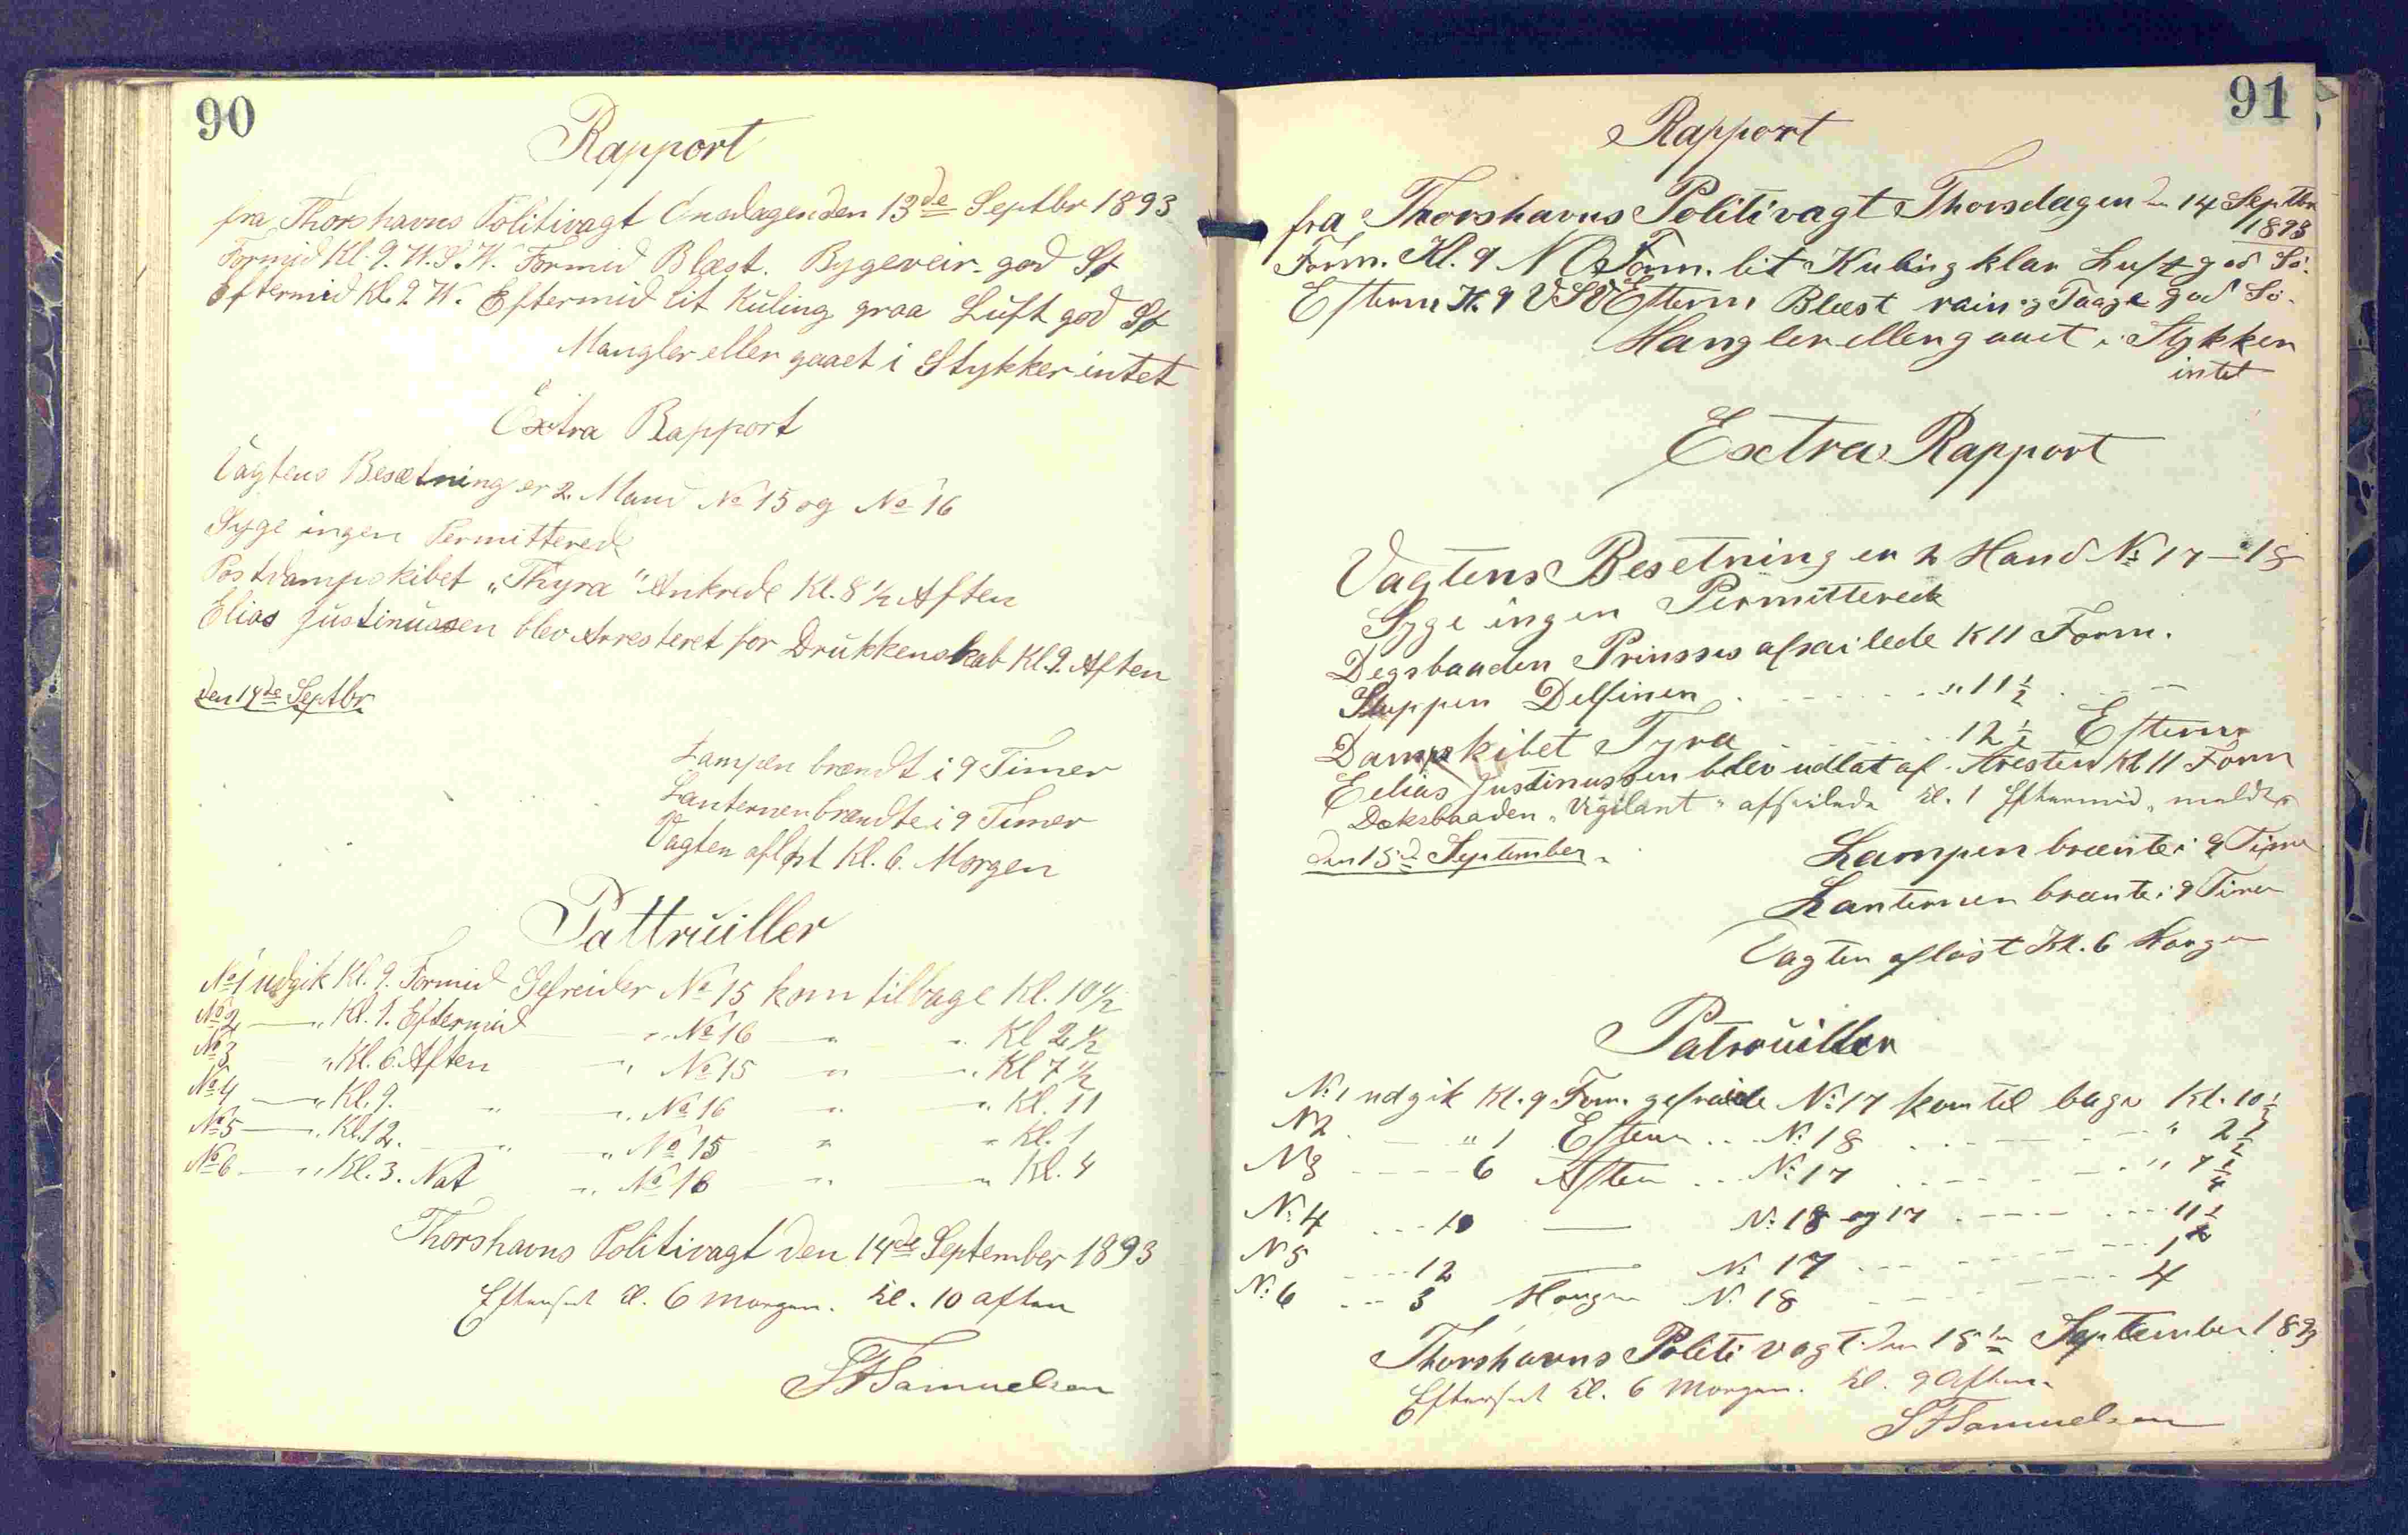 90
Rapport
fra Thorshavns Politivagt Onsdagen den 13de Septbr 1893
Formid Kl. 9. W.S.W. Formid Blæst. Bygeveir. god Sø
Eftermid Kl. 9 W. Eftermid lit Kuling graa Luft god Sø
Mangler eller gaaet i Stykker intet
Extra Rapport
Vagtens Besætning er 2. Mand No 15 og No 16
Syge ingen Permitterede
Postdampskibet „Thyra" Ankrede Kl. 8 1/2 Aften
Elias Justinussen blev Arresteret for Drukkenskab Kl. 9. Aften
den 14de Septbr.
Lampen brændt i 9 Timer
Lanternen brændte i 9 Timer
Vagten afløst Kl. 6. Morgen
Pattruiller
No 1 udgik Kl. 9. Formid Gefreider No 15 kom tilbage Kl. 10 1/2
No 2 — „ Kl. 1. Eftermid „ No 16 — „ „ Kl 2 1/2
No 3 „ Kl. 6. Aften „ No 15 „ „ Kl 7 1/2
No 4 — „ Kl. 9. „ „ No 16 „ „ Kl. 11
No 5 — „ Kl. 12. „ „ No 15 „ „ Kl. 1
No 6 — „ Kl. 3. Nat „ No 16 „ „ Kl. 4
Thorshavns Politivagt den 14de September 1893
Efterset Kl. 6 morgen. Kl. 10 aften
Samuelsen
91
Rapport
fra Thorshavns Politivagt Thorsdagen den 14 Septbr
1893
Form. Kl. 9 NO Form. lit Kuling klar Luft god Sö.
Efterm Kl. 9 VSV Efterm Blæst rain og Taage god Sö.
Mangler eller gaaet i Stykker
intet
Extra Rapport
Vagtens Besetning er 2 Mand No 17 — 18
Syge ingen Permitterede
Degsbaaden Prinsses afsailede K 11 Form.
Sluppen Delfinen „ 11 1/2 —
Dampskibet Tyra 12 1/2 Efterm
Eelias Justinussen blev udlat af Aresten Kl 11 Form
Dæksbaaden „Vigilant" afseilede Kl. 1 Eftermid,
den 15de September.
Lampen brænte i 9 Timer
Lanternen brænte i 9 Timer
Vagten aflöst Kl. 6 Morgen
Patrouiller
No 1 udgik Kl. 9 Form. gefreide No 17 kom til bage Kl. 10 1/2
N 2 — „ 1 Efterm No 18 — „ 2 1/2
N 3 — 6 Aften No 17 — „ 7 1/4
No 4 — 10 — No 18 og 17 — 11 1/2
N 5 — 12 — No 17 — 1
No 6 — 3 Morgen No 18 — 4
Thorshavns Politivagt den 15de September 1893
Efterset Kl. 6 morgen. Kl. 9 Aften.
Samuelsen